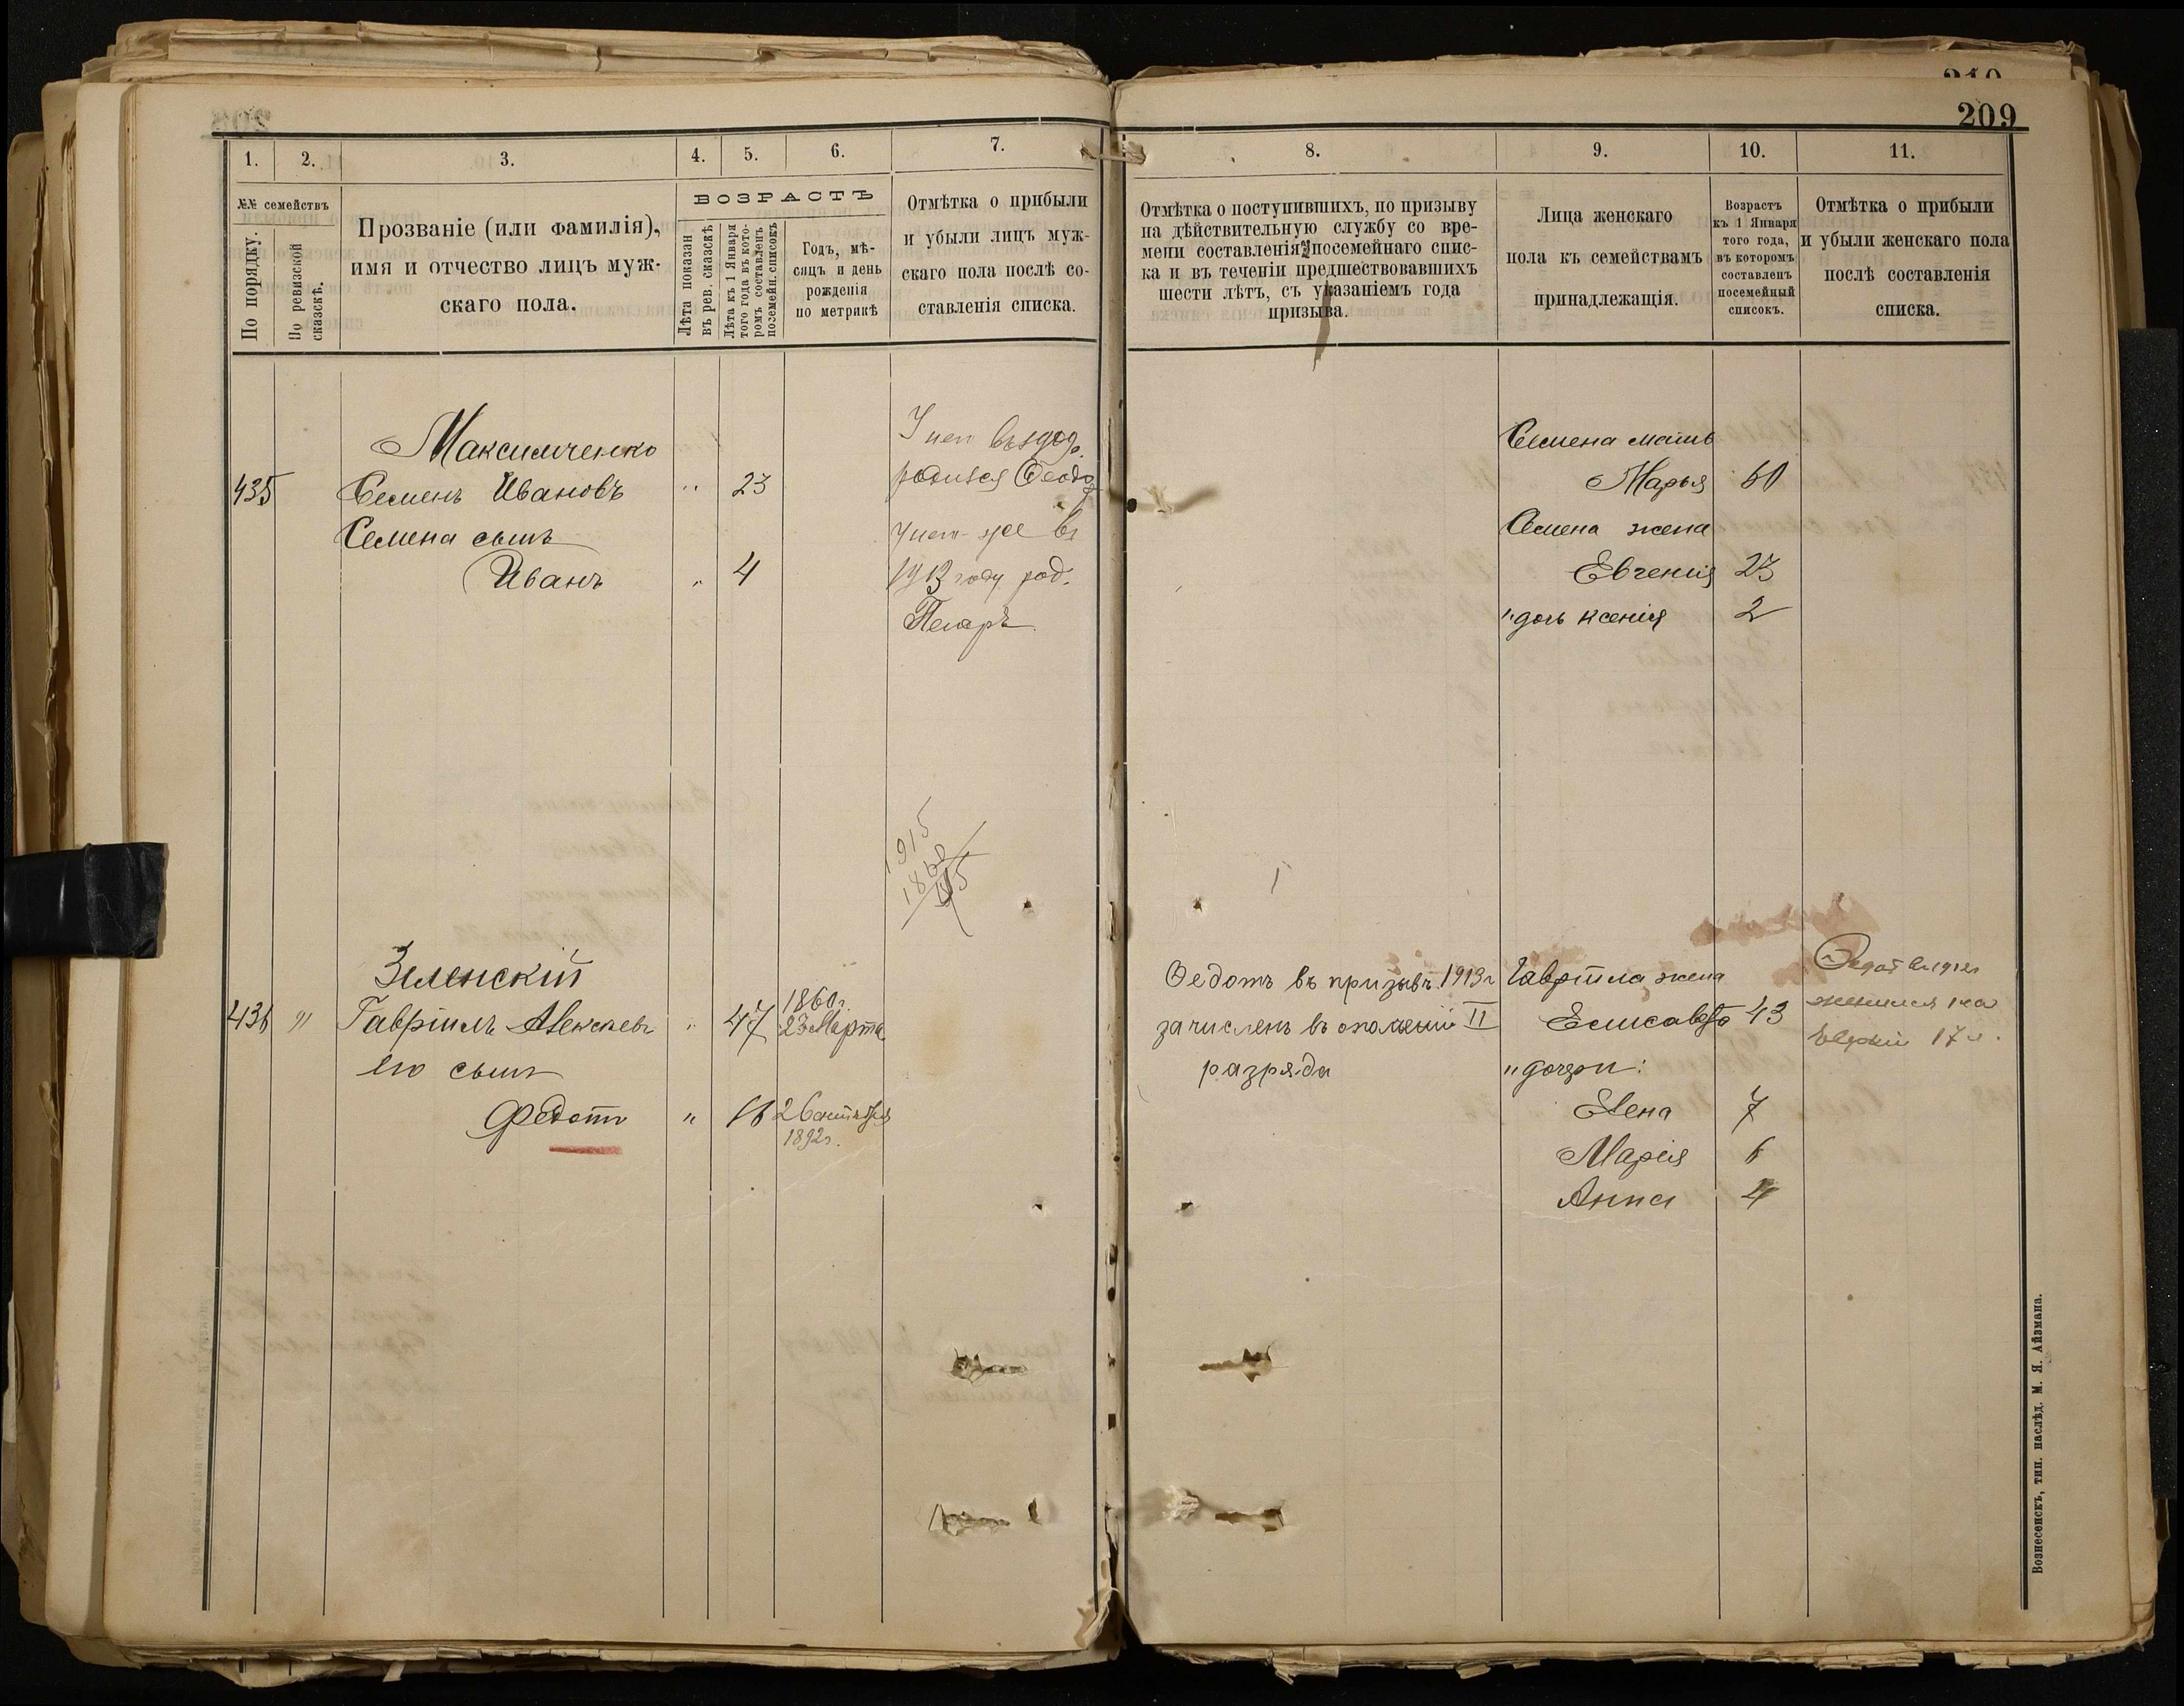 210
209
1. 2. 3. 4. 5. 6. 7.
№№ семействъ
По порядку.
По ревизской сказскѣ.
Прозваніе (или фамилія),
имя и отчество лицъ муж-
скаго пола.
ВОЗРАСТЪ
Лѣта показан
въ рев. сказскѣ
Лѣта къ 1 Января
того года въ кото-
ромъ составленъ
посемейн. списокъ
Годъ, мѣ-
сяцъ и день
рожденія
по метрикѣ
Отмѣтка о прибыли
и убыли лицъ муж-
скаго пола послѣ со-
ставленія списка.
8. 9. 10. 11.
Отмѣтка о поступившихъ, по призыву
на дѣйствительную службу со вре-
мени составленія посемейнаго спис-
ка и въ теченіи предшествовавшихъ
шести лѣтъ, съ указаніемъ года
призыва.
Лица женскаго
пола къ семействамъ
принадлежащія.
Возрастъ
къ 1 Января
того года,
въ которомъ
составленъ
посемейный
списокъ.
Отмѣтка о прибыли
и убыли женскаго пола
послѣ составленія
списка.
Максимченко
435 Семенъ Ивановъ " 23
Семена сынъ
Иванъ " 4
У него въ 1909 г.
родился
У него же въ
1913 году род.
Петръ
Семена мать
Марья 60
Семена жена
Евгенія 23
" дочь Ксенія 2
1915
1860
Зеленскій
436 " Гавріилъ Алексѣевъ " 47 1860 г.
23 Марта
его сынъ
Федотъ " 16 26 октября
1892 г.
Ѳедотъ въ призывъ 1913 г
зачисленъ въ ополченіи II
разряда
Гавріила жена
Елисавета 43
" дочери:
Елена 7
Марія 6
Анна 4
Федотъ въ 1912 г
женился на
17 л.
Вознесенскъ, тип. наслѣд. М. Я. Айзмана.